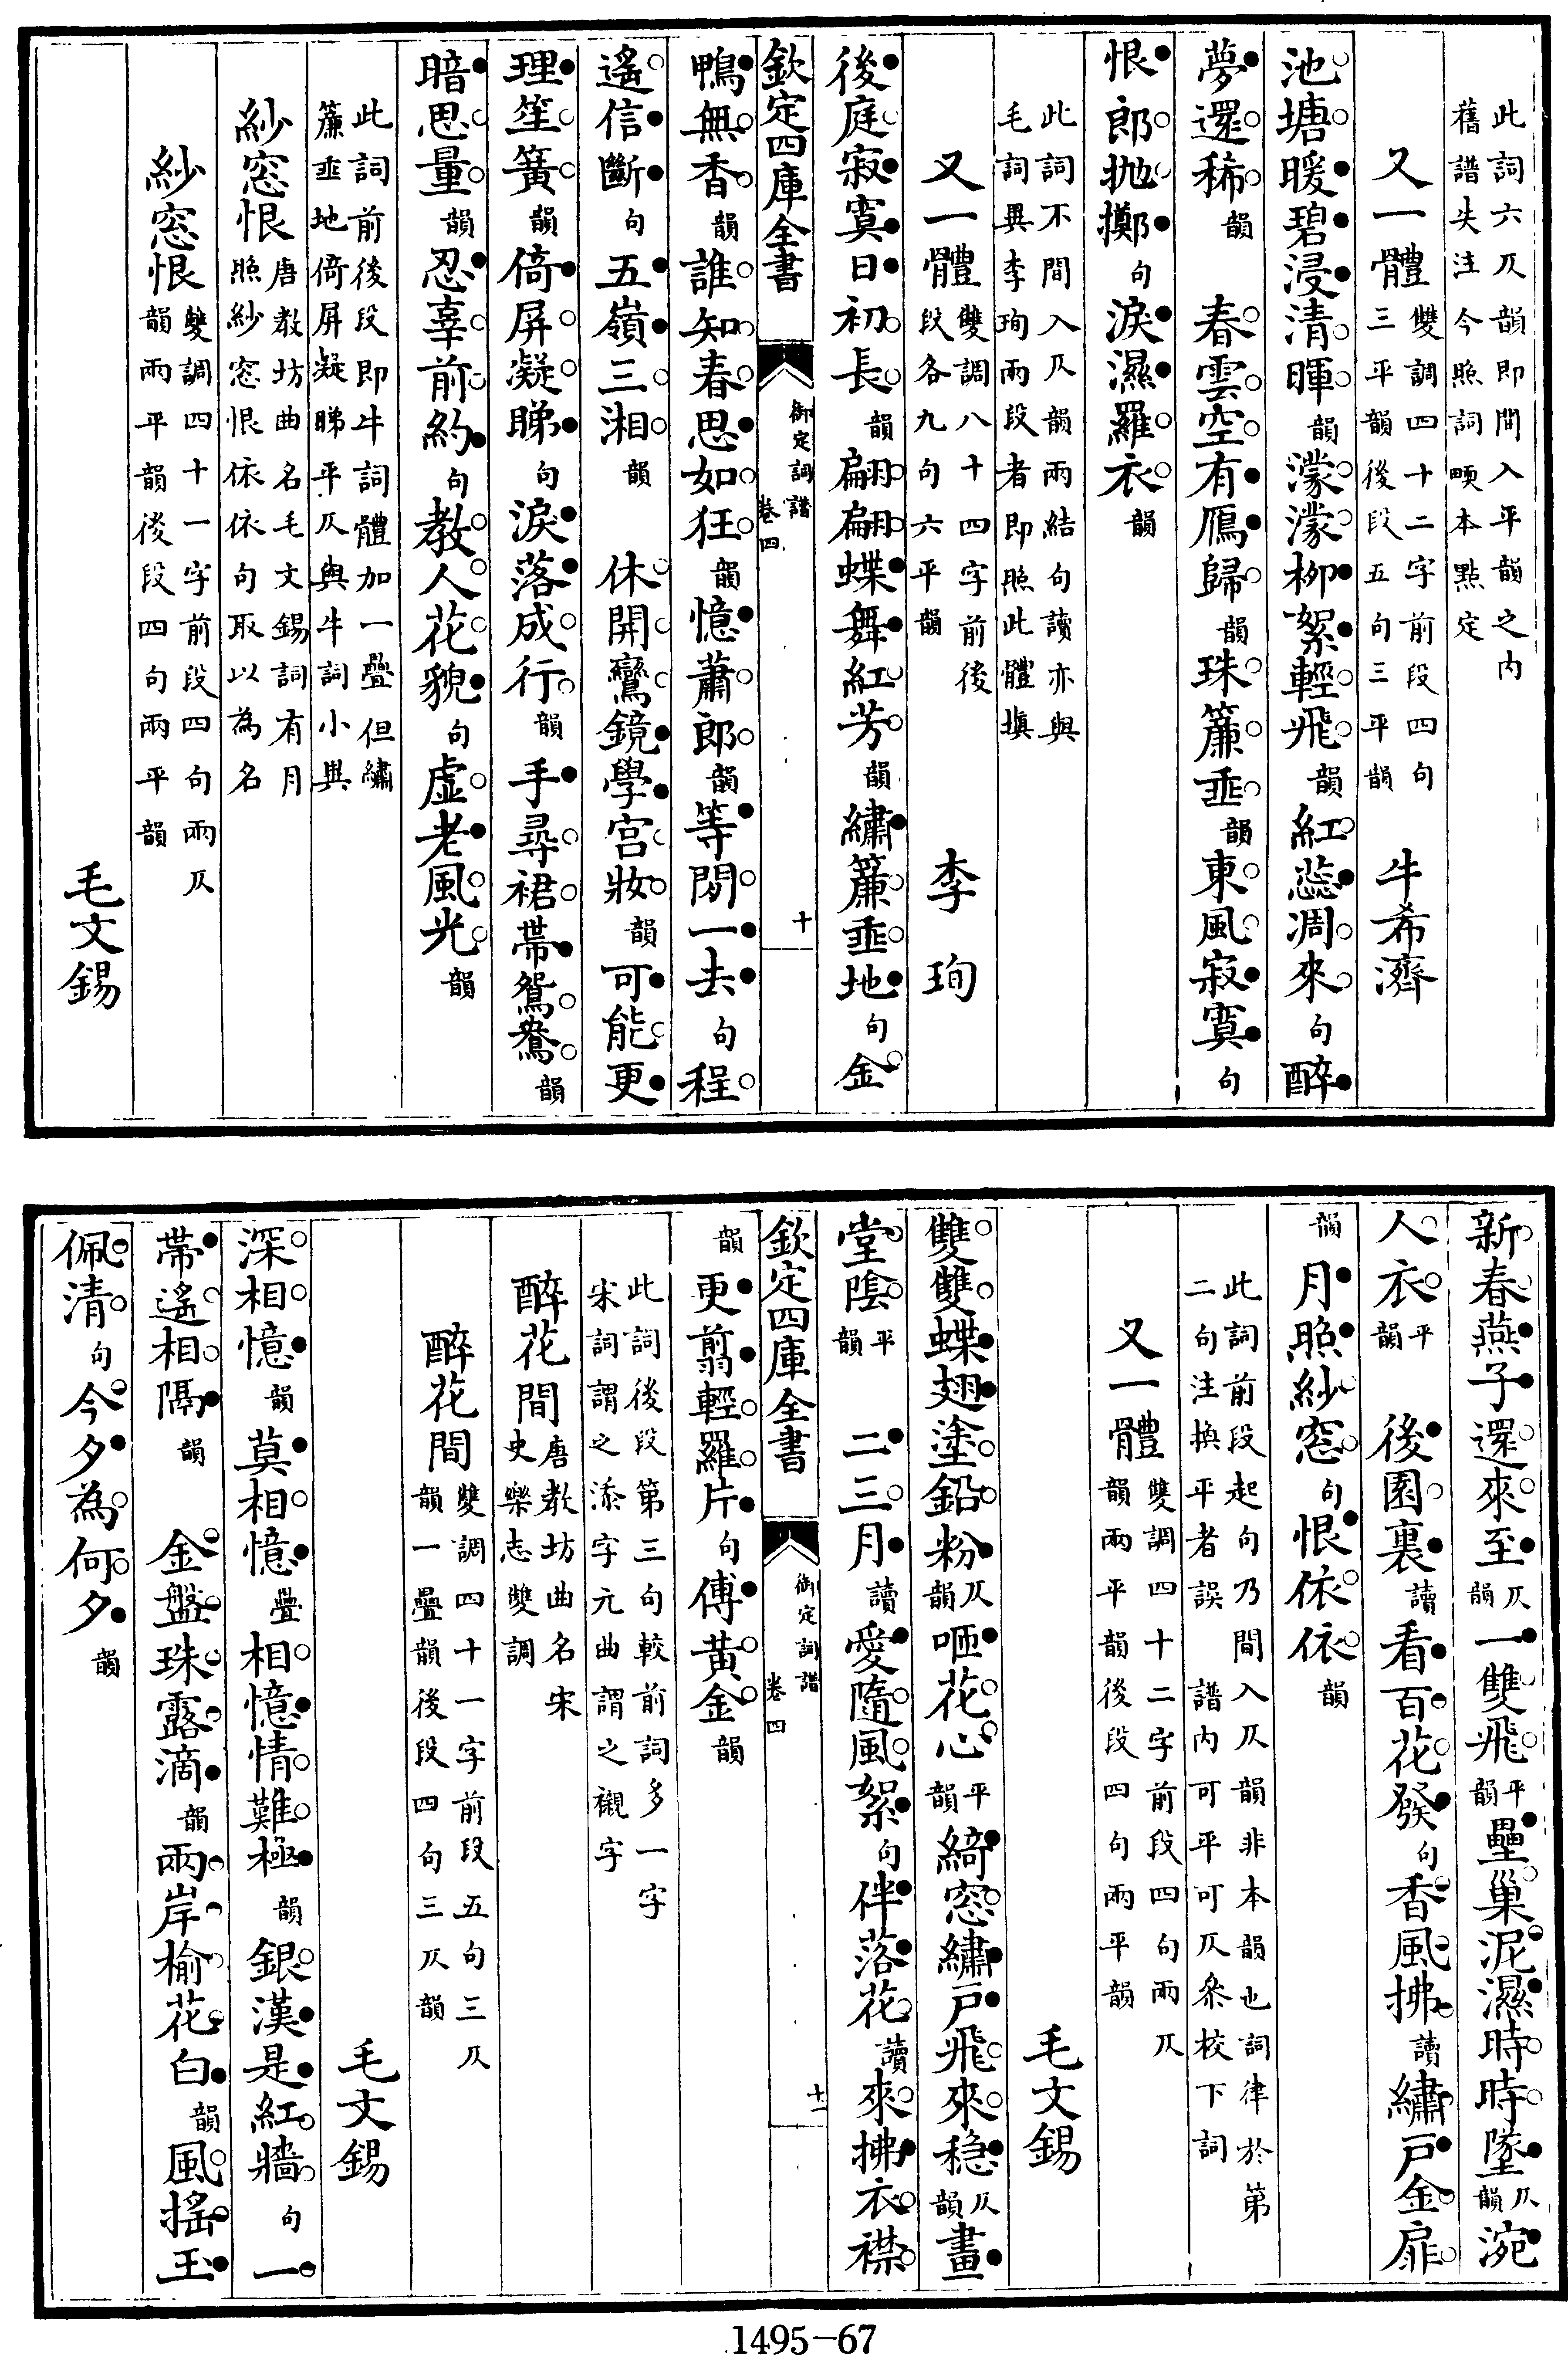 此詞六仄韻即間入平韻之内
舊譜失注今照詞㬰本㸃定
又一體雙調四十二字前段四句
三平韻後段五句三平韻
牛希濟
池塘暖碧浸清暉韻濛濛柳絮輕飛韻紅蕊凋來句醉
夢還稀韻 春雲空有鴈歸韻珠簾垂韻東風寂寞句
恨郎抛擲句淚濕羅衣韻
此詞不間入仄韻兩結句讀亦與
毛詞異李珣兩段者即照此體填
又一體雙調八十四字前後
段各九句六平韻
李珣
後庭寂寞日初長韻翩翩蝶舞紅芳韻繡簾垂地句金
欽定四庫全書
御定詞譜
卷四
十
鴨無香韻誰知春思如狂韻憶蕭郎韻等閒一去句程
遙信斷句五嶺三湘韻 休開鸞鏡學宫妝韻可能更
理笙簧韻倚屏凝睇句淚落成行韻手尋裙帶鴛鴦韻
暗思量韻忍辜前約句教人花貌句虚老風光韻
此詞前後段即牛詞體加一疊但繡
簾垂地倚屏凝睇平仄與牛詞小異
紗窓恨唐教坊曲名毛文錫詞有月
照紗窓恨依依句取以為名
紗窓恨雙調四十一字前段四句兩仄
韻兩平韻後段四句兩平韻
毛文錫
新春燕子還來至仄韻一雙飛平韻壘巢泥濕時時墜仄韻涴
人衣平韻 後園裏讀看百花發句香風拂讀繡戸金扉
韻月照紗窓句恨依依韻
此詞前段起句乃間入仄韻非本韻也詞律於第
二句注換平者誤 譜内可平可仄叅校下詞
又一體雙調四十二字前段四句兩仄
韻兩平韻後段四句兩平韻
毛文錫
雙雙蝶翅塗鉛粉仄韻咂花心平韻綺窓繡戸飛來穏仄韻畫
堂隂平韻 二三月讀愛隨風絮句伴落花讀來拂衣襟
欽定四庫全書
御定詞譜
卷四
十一
韻更翦輕羅片句傅黄金韻
此詞後段第三句較前詞多一字
宋詞謂之添字元曲謂之襯字
醉花間唐教坊曲名宋
史樂志雙調
醉花間雙調四十一字前段五句三仄
韻一疊韻後段四句三仄韻
毛文錫
深相憶韻莫相憶疊相憶情難極韻銀漢是紅牆句一
帶遙相隔韻 金盤珠露滴韻兩岸榆花白韻風搖玉
佩清句今夕為何夕韻
1495-67